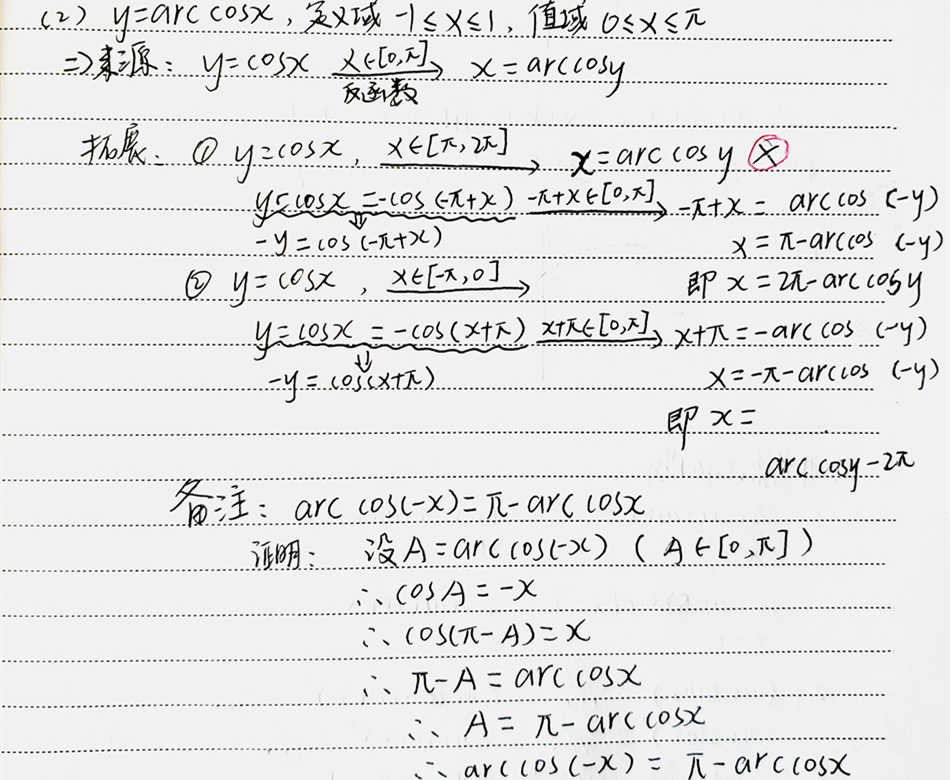 (2) y=arc cosx, 定义域 -1≤x≤1, 值域 0≤x≤π
=>来源: y=cosx x∈[0,π] 反函数 → x=arccosy
拓展: ① y=cosx, x∈[π,2π] → x=arc cos y ×
y=cosx=-cos(-π+x) -π+x∈[0,π] → -π+x= arc cos (-y)
⇓
-y=cos(-π+x) x=π-arccos (-y)
② y=cosx, x∈[-π,0] → 即 x=2π-arc cos y
y=cosx=-cos(x+π) x+π∈[0,π] → x+π=-arc cos (-y)
⇓
-y=cos(x+π) x=-π-arccos (-y)
即 x=
arc cosy-2π
备注: arc cos(-x)=π-arc cosx
证明: 设A=arc cos(-x) (A∈[0,π])
∴cosA=-x
∴cos(π-A)=x
∴π-A=arc cosx
∴A=π-arc cosx
∴arc cos(-x)=π-arc cosx